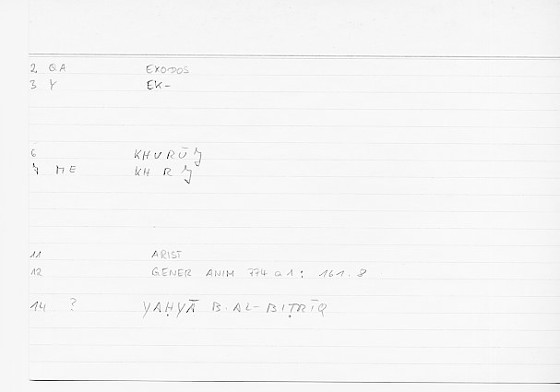 2 QA EXODOS
3 Y EK-
6 KHURŪǦ
7 ME KHRǦ
11 ARIST
12 GENER ANIM 774 a 1 : 161.8
14 ? YAḤYĀ B. AL-BIṬRĪQ